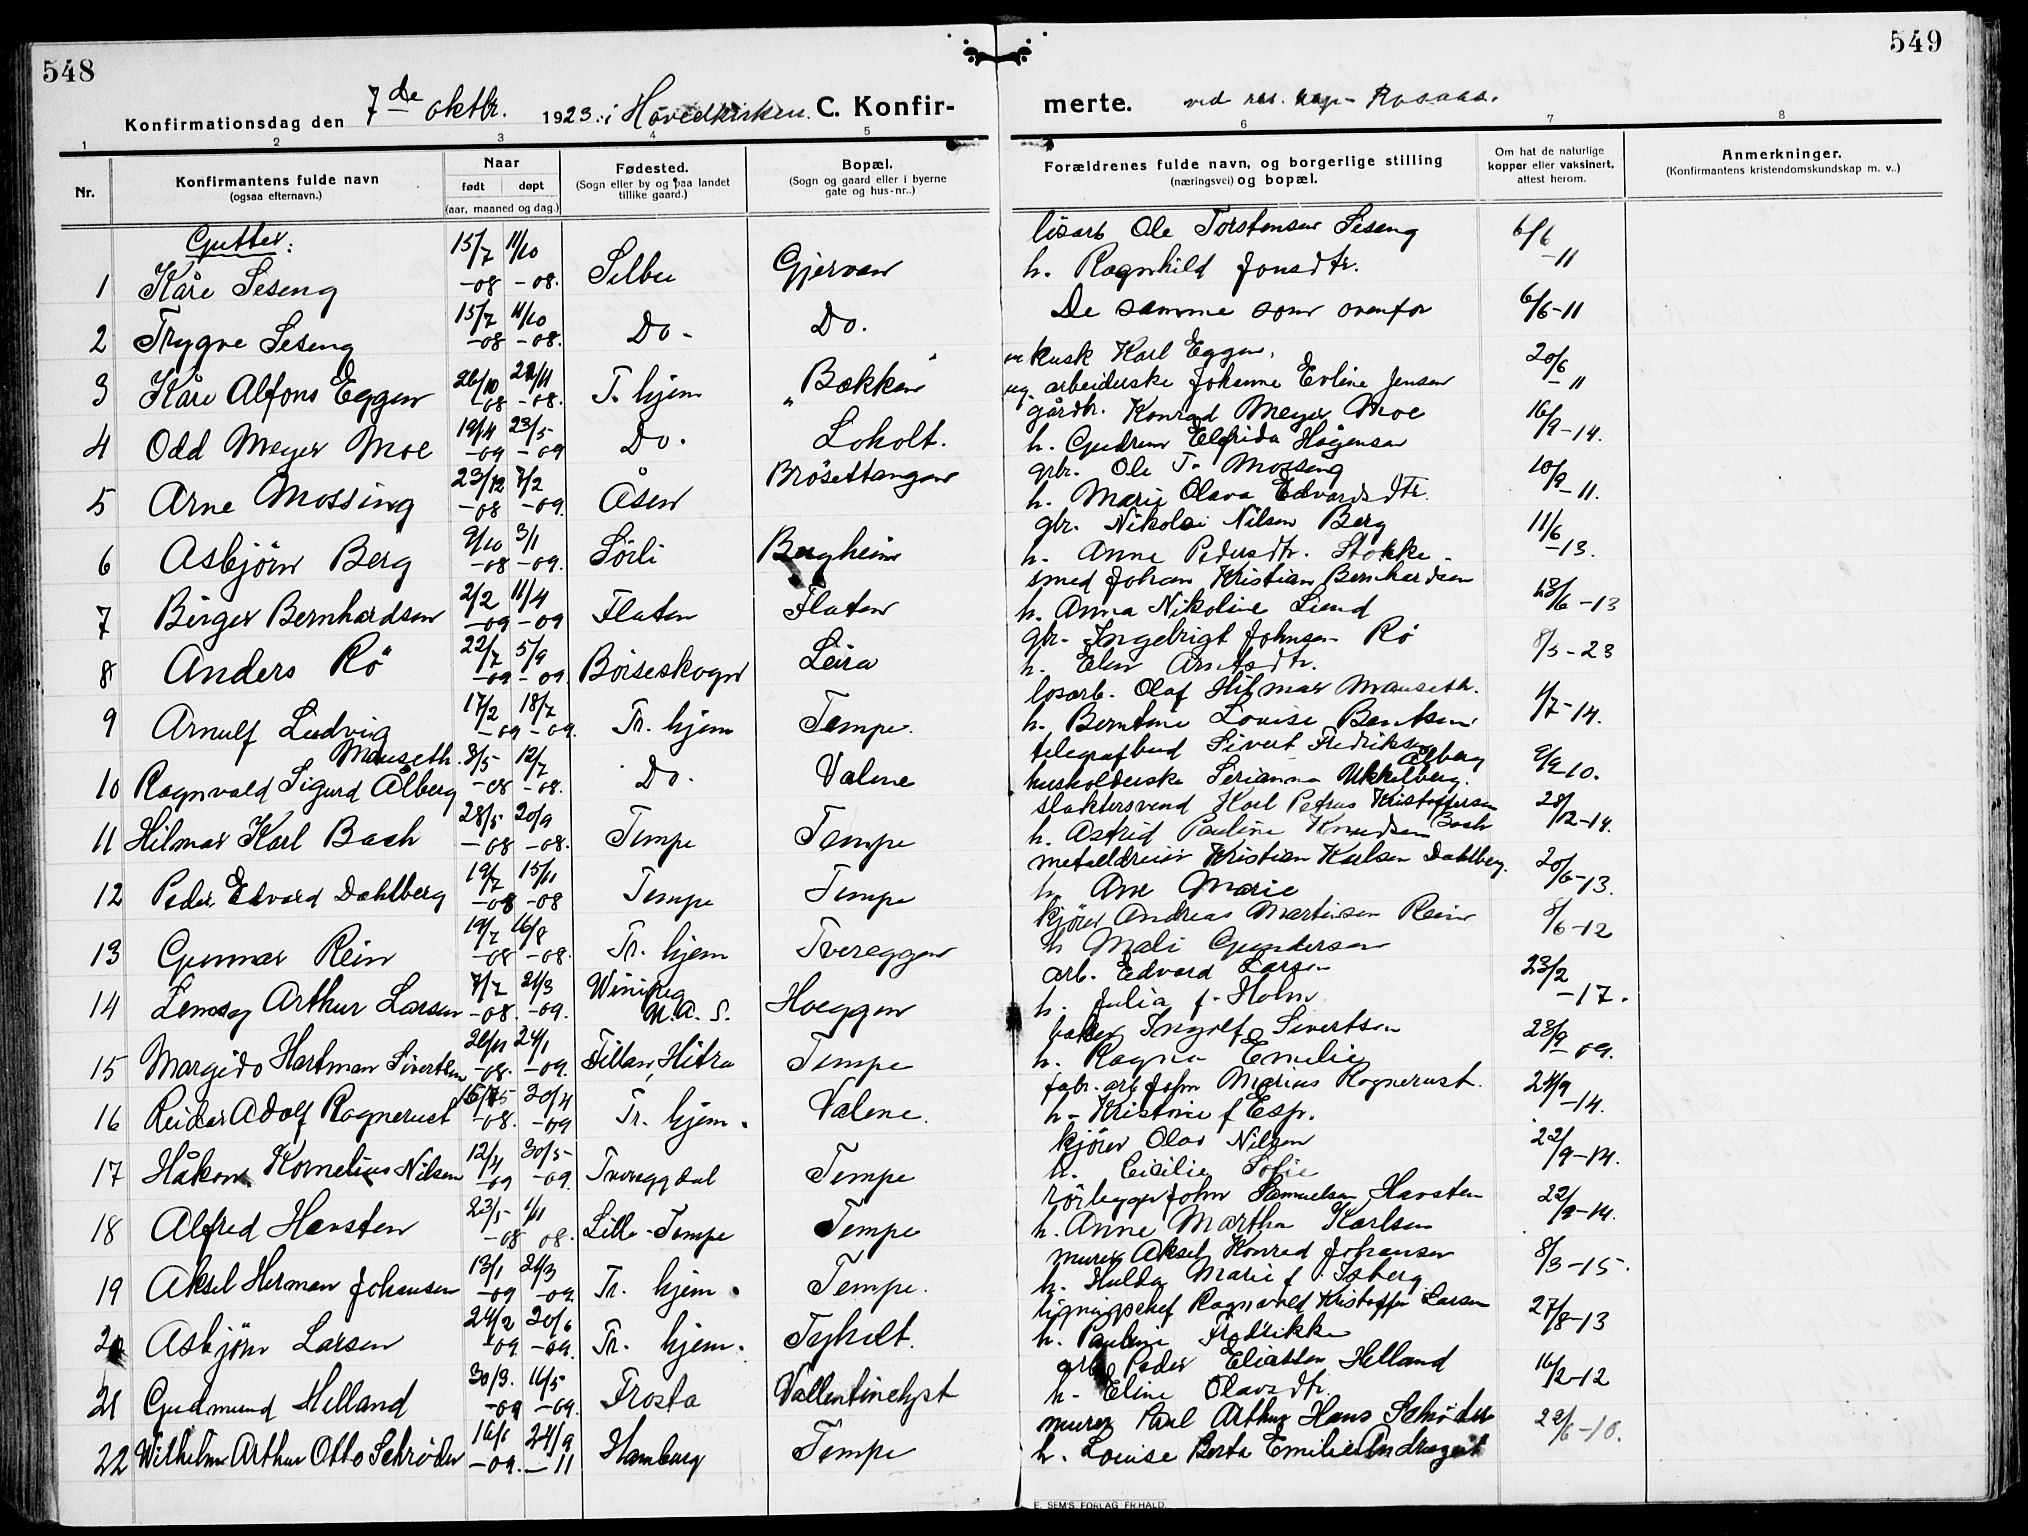 548
549
Konfirmationsdag den 7de oktbr. 1923. i Hovedkirken. C. Konfir-
merte. ved res. kap. Rosaas.
1 2 3 4 5 6 7 8
Nr. Konfirmantens fulde navn (ogsaa efternavn.) Naar født døpt (aar, maaned og dag.) Fødested. (Sogn eller by og paa landet tillike gaard.) Bopæl. (Sogn og gaard eller i byerne gate og hus-nr..) Forældrenes fulde navn, og borgerlige stilling (næringsvei) og bopæl. Om hat de naturlige kopper eller vaksinert, attest herom. Anmerkninger. (Konfirmantens kristendomskundskap m. v..)
Gutter:
1 Kåre Seseng 15/7 -08 11/10 -08. Selbu Gjervan løsarb Ole Torstensen Seseng h. Ragnhild Jonsdtr. 6/6 -11
2 Trygve Seseng 15/7 -08 11/10 -08. Do- Do. De samme som ovenfor 6/6-11
3 Kåre Alfons Eggen 26/10 -08 22/11 -08. T. hjem Bækken kusk Karl Eggen, ug. arbeiderske Johanne Evline Jensen 20/6 -11
4 Odd Meyer Moe 19/4 -09 23/5 -09 Do. Loholt. gårdbr. Konrad Meyer Moe h. Gudrun Elfrida Hågensen 16/9-14.
5 Arne Mossing 23/12 -08 7/2 -09. Åsen Brøsettangen gbr. Ole T. Mossing h. Marie Olava Edvardsdtr. 10/9-11.
6 Asbjørn Berg 9/10 -08 3/1 -09. Sørli Bergheim gbr. Nikolai Nilsen Berg h. Anne Pedersdtr. Stokke. 11/6 -13.
7 Birger Bernhardsen 2/2 -09 11/4 -09 Flaten Flaten smed Johan Kristian Bernhardsen h. Anna Nikoline Lund 18/6-13
8 Anders Rø 22/7 -09 5/9 -09. Leira gbr. Ingebrigt Johnsen Rø h. Elen Arntsdtr. 8/5-23
9 Arnulf Ludvig Mauseth. 17/2 -09 18/7 -09. Tr. hjem Tempe. løsarb. Olaf Hilmar Mauseth. h. Berntine Lovise Berntsen 1/7-14.
10 Ragnvald Sigurd Ålberg 8/5 -08 12/7 -08. Do. Valene telegrafbud Sivert Fredriksen Ålberg husholderske Serianna Ukkelberg. 9/9-10.
11 Hilmar Karl Bach 28/5 -08 20/9 -08. Tempe Tempe slaktersvend Karl Petrus Kristoffersen Bach h. Astrid Pauline Knudsen 28/12-14.
12 Peder Edvard Dahlberg 19/7 -08 15/11 -08 Tempe Tempe metaldreier Kristian Karlsen Dahlberg. h. Ane Marie 20/6-13.
13 Gunnar Rein 19/7 -08 16/8 -08. Tr. hjem Tvereggen kjører Andreas Martinsen Rein h Mali Gundersen 8/6-12
14 Arthur Larsen 7/7 -08. 21/3 -09. Winipeg U.A.S. Hoeggen arb. Edvard Larsen h. Julia f. Holm 23/2 -17.
15 Margido Hartman Sivertsen 26/11 -08. 24/1 -09. Fillan, Hitra Tempe baker Ingolf Sivertsen h. Ragna Emelie 28/9 -09.
16 Reidar Adolf Rognerust -08. 20/4 -09 Tr. hjem. Valene. fabr. arb John Marius Rognerust. h- Kristine f Esp. 24/9 -14.
17 Håkon Kornelius Nilsen 12/4 -09 30/5 -09. Tvereggdal Tempe kjører Olav Nilsen h. Cicilie Sofie 22/9-14.
18 Alfred Havsten 23/5 -08 1/11 08. Lille-Tempe Tempe rørlegger John Samuelsen Havsten h. Anne Martha Karlsen 22/9-14.
19 Aksel Herman Johansen 13/1 -09 21/3 -09. Tr. hjem. Tempe. murer Aksel Konrad Johansen h. Hulda Marie f. Isberg. 8/3-15.
20 Asbjørn Larsen 24/2 -09. 20/6 -09. Tr. hjem. Tyholt. ligningschef Ragnvald Kristoffer Larsen h. Pauline Fredrikke 27/8-13
21 Gudmund Helland 30/3. -09 16/5 -09. Frosta Vallentinelyst arb Peder Eliassen Helland h- Eline Olavsdtr. 16/2-12
22 Wilhelm Arthur Otto Schrøder 16/1 -09. 24/9 -11 Hamburg Tempe murer Paul Arthur Hans Schrøder h. Louise Berta Emilie 22/6-10.
E. SEM'S FORLAG FR.HALD